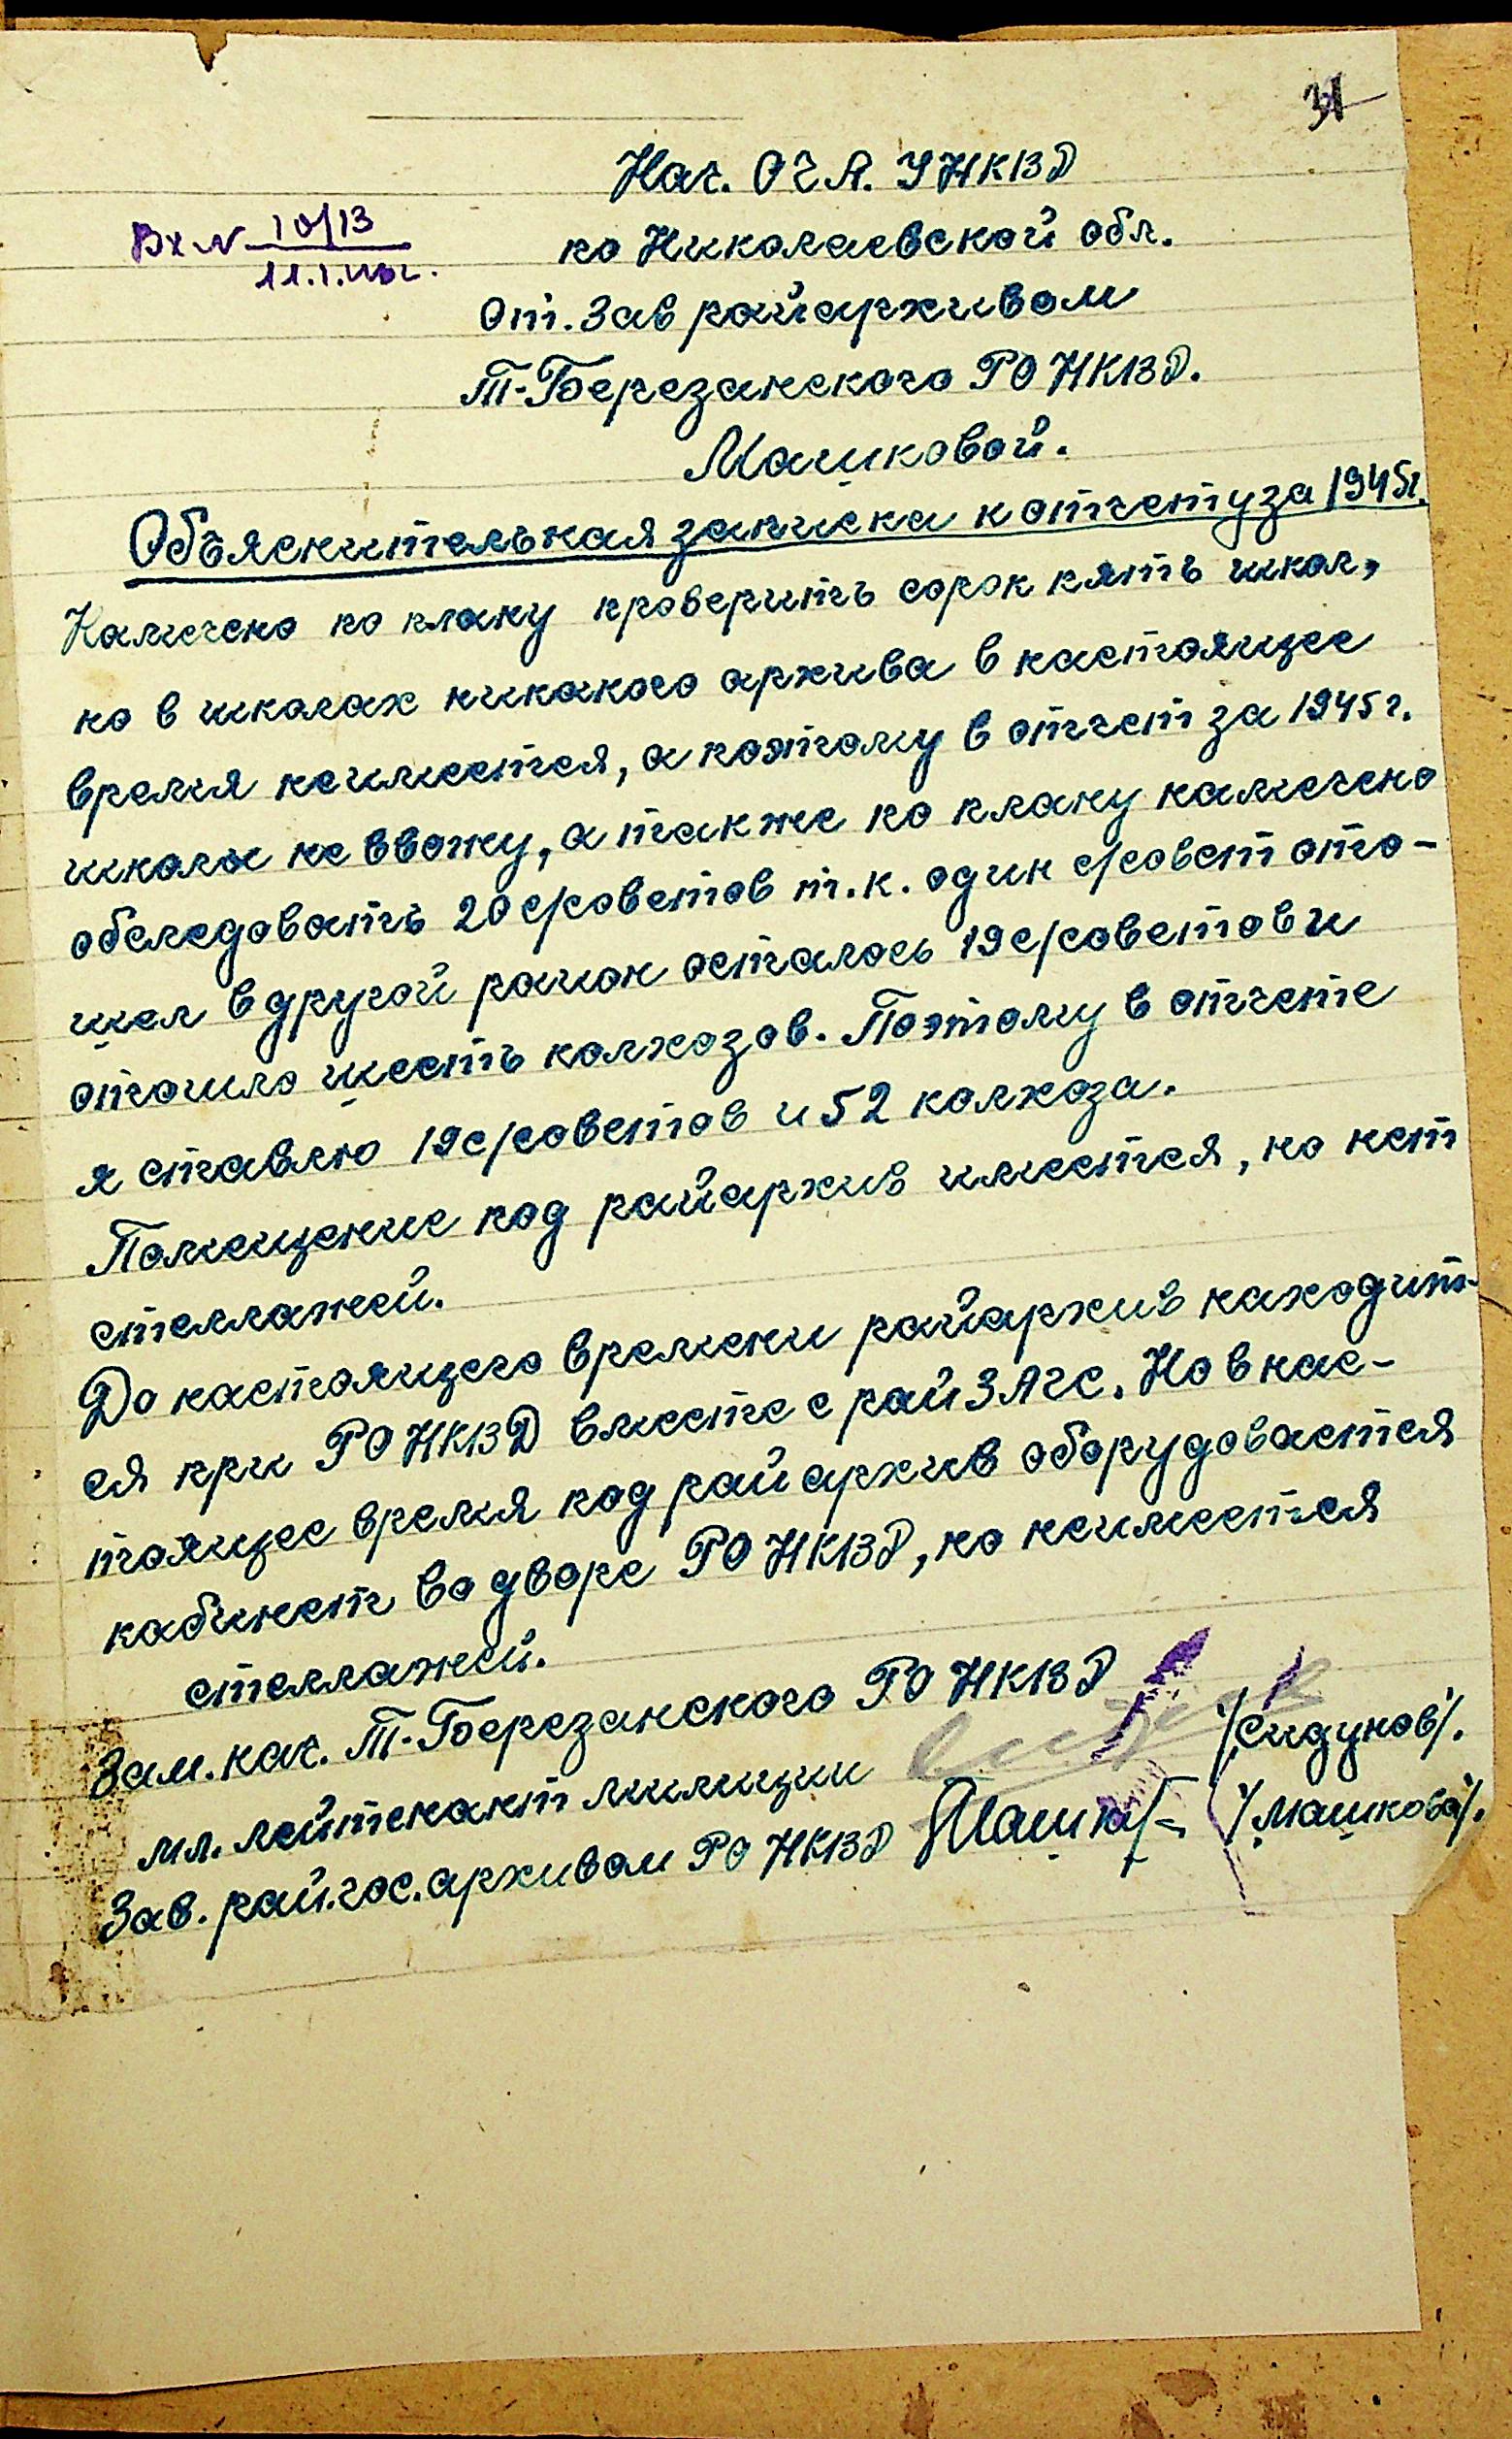 31
Нач. ОГА. УНКВД
Вх № 10/13
11.I.46г.
по Николаевской обл.
От. Зав райархивом
Т-Березанского РО НКВД.
Машковой.
Объяснительная записка к отчету за 1945г.
Намечено по плану проверить сорок пять школ,
но в школах никакого архива в настоящее
время неимеется, а поэтому в отчет за 1945 г.
школы не ввожу, а также по плану намечено
обследовать 20 с/советов т.к. один с/совет ото-
шел в другой район осталось 19 с/советов и
отошло шесть колхозов. Поэтому в отчете
я ставлю 19 с/советов и 52 колхоза.
Помещение под райархив имеется, но нет
стеллажей.
До настоящего времени райархив находит-
ся при РО НКВД вместе с рай ЗАГС. Но в нас-
тоящее время под райархив оборудовается
кабинет во дворе РО НКВД, но неимеется
стеллажей.
Зам. нач. Т-Березанского РО НКВД
мл. лейтенант милиции /Сидунов/.
Зав. рай.гос.архивом РО НКВД Машк /Машкова/.